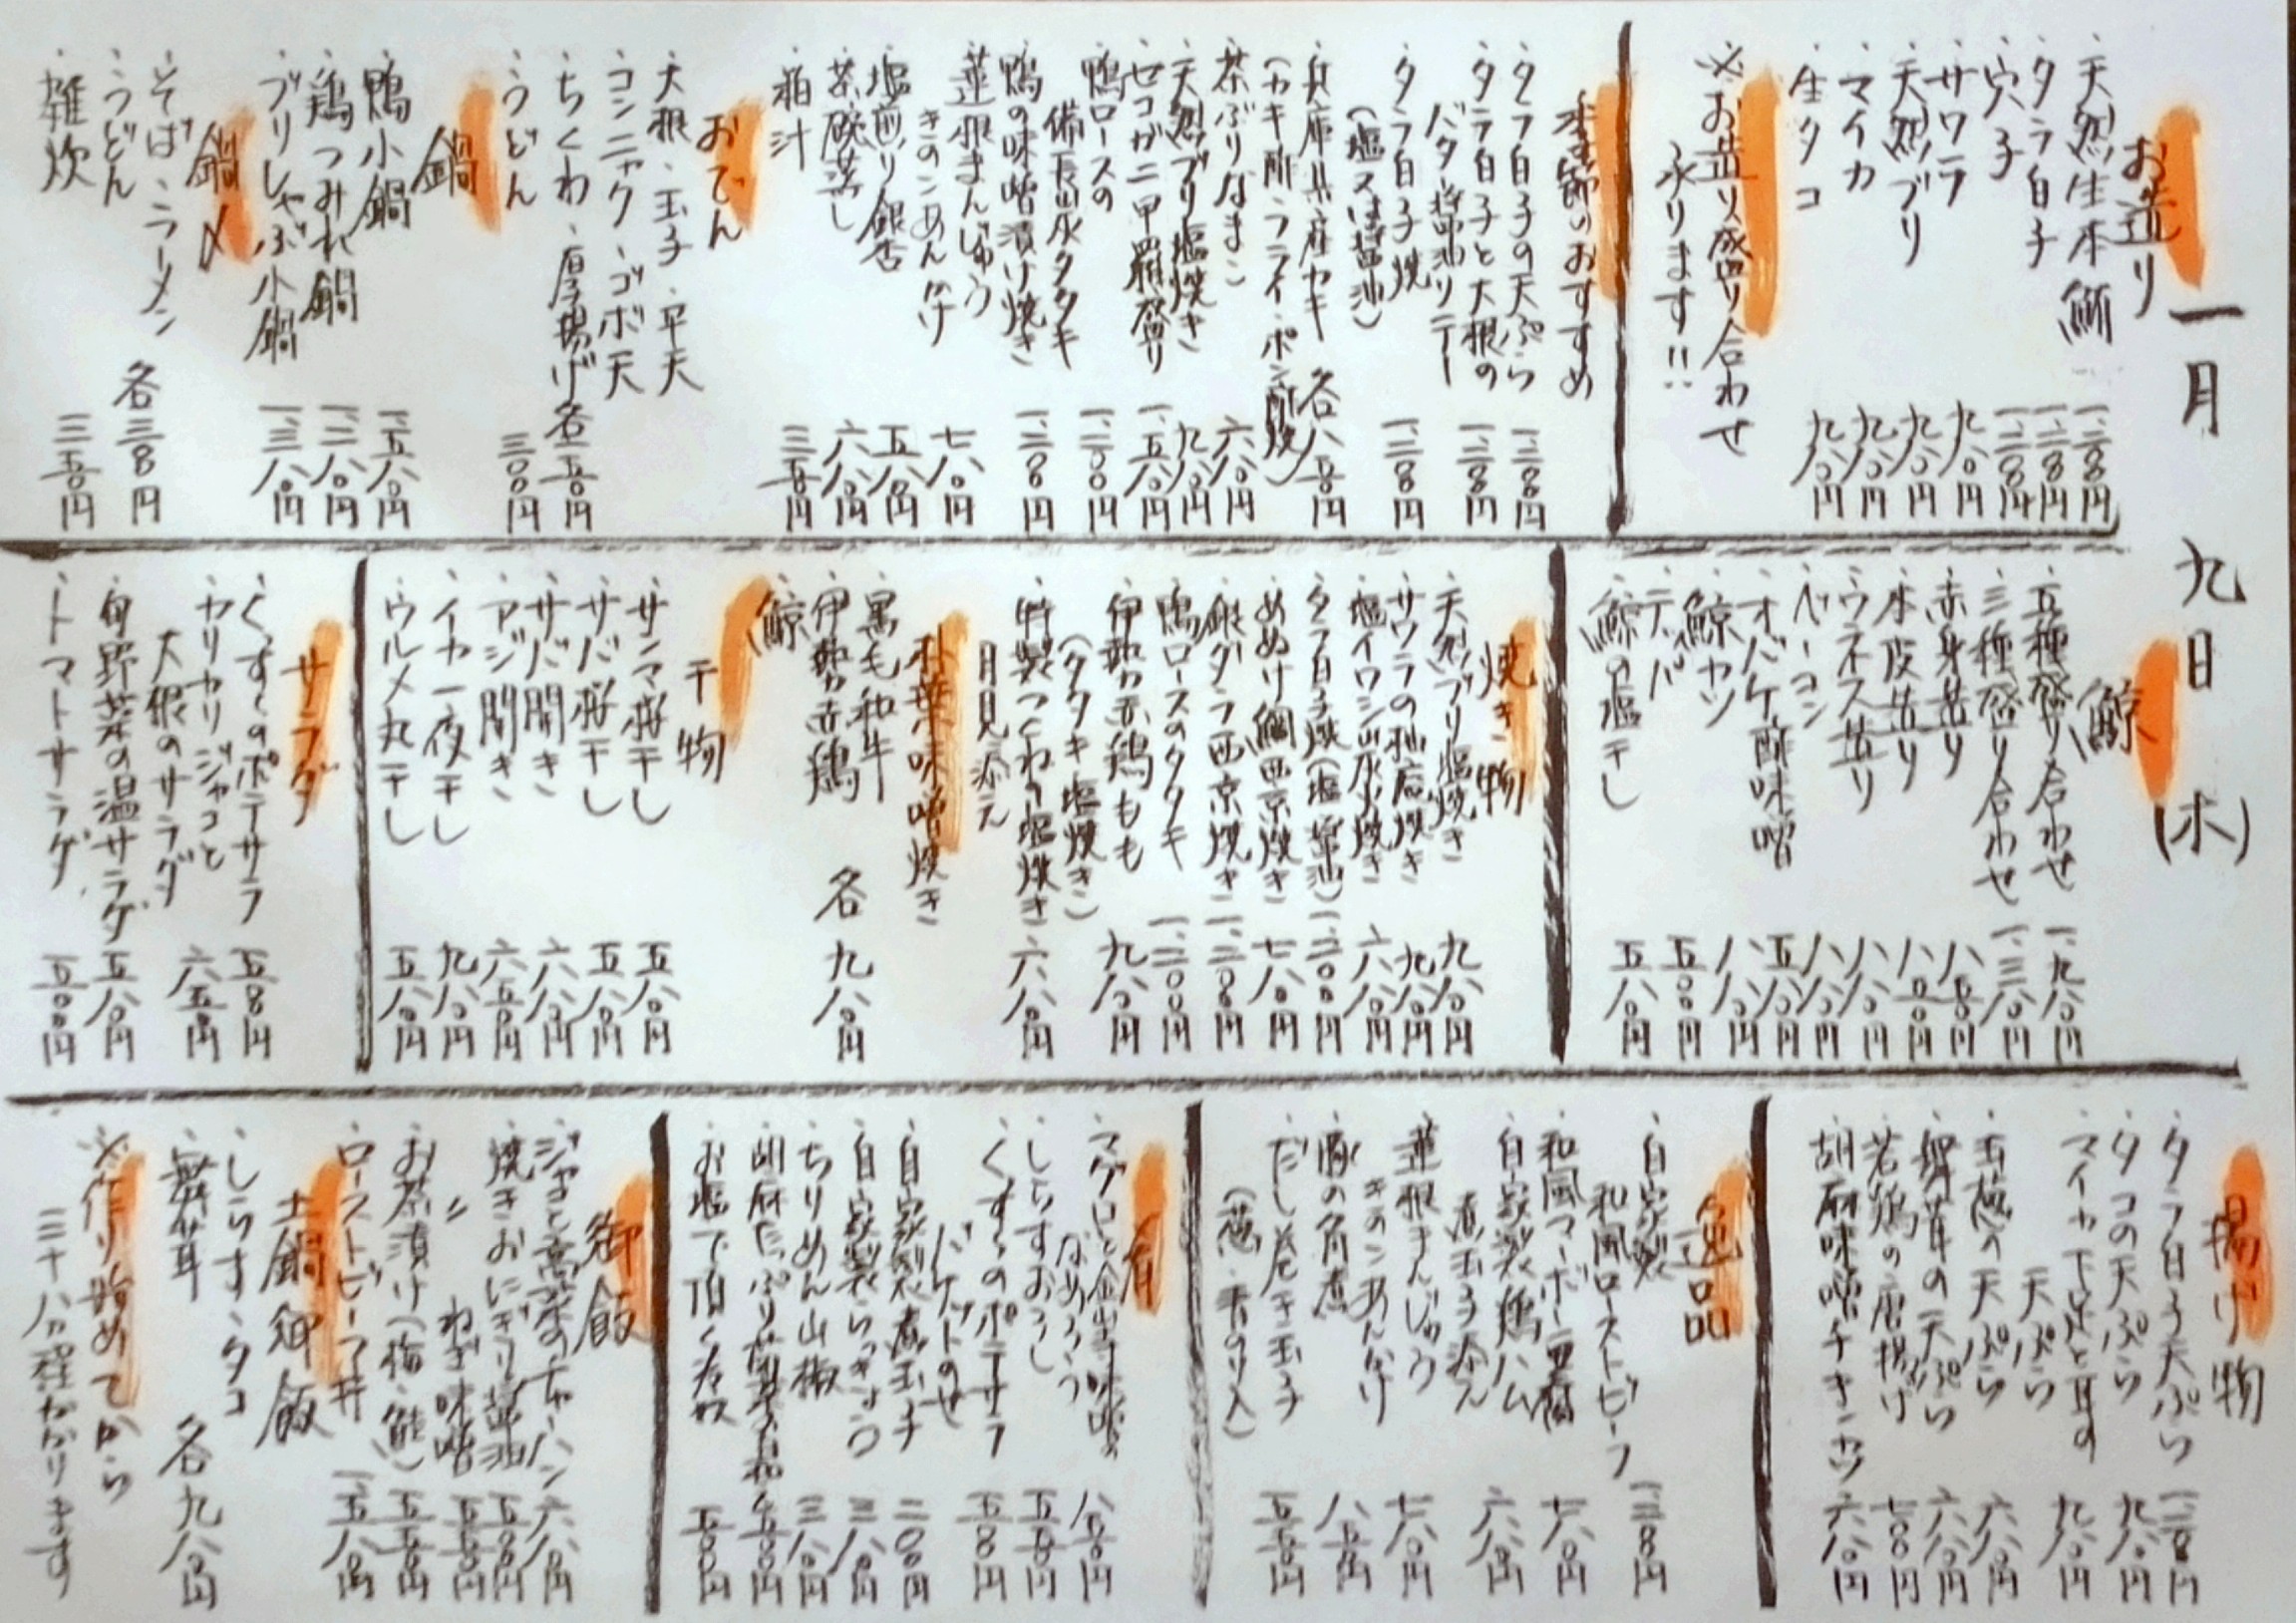 一月 九日(木)
お造り
・天然生本鮪 一、二八〇円
・タラ白子 一、二八〇円
・穴子 一、二八〇円
・サワラ 九八〇円
・天然ブリ 九八〇円
・マイカ 九八〇円
・生タコ 九八〇円
※お造り盛り合わせ
承ります!!
季節のおすすめ
・タラ白子の天ぷら 一、二八〇円
・タラ白子と大根の
バタ醤油ソテー 一、二八〇円
・タラ白子焼
(塩又は醤油) 一、二八〇円
・兵庫県産カキ
(カキ酢・フライ・ポン酢焼) 各八五〇円
・茶ぶりなまこ 六八〇円
・天然ブリ塩焼き 九八〇円
・セコガニ甲羅盛り 一、五八〇円
・鴨ロースの
備長炭タタキ 一、二〇〇円
・鴨の味噌漬け焼き 一、二八〇円
・蓮根まんじゅう
きのこあんかけ 七八〇円
・塩煎り銀杏 五八〇円
・茶碗蒸し 六八〇円
・粕汁 三五〇円
おでん
・大根・玉子・平天
・コンニャク・ゴボ天
・ちくわ・厚揚げ 各二五〇円
・うどん 三〇〇円
鍋
・鴨小鍋 一、五八〇円
・鶏つみれ鍋 一、二八〇円
・ブリしゃぶ小鍋 一、三八〇円
鍋〆
・そば・ラーメン
・うどん 各三三〇円
・雑炊 三五〇円
鯨
・五種盛り合わせ 一、九八〇円
・三種盛り合わせ 一、三八〇円
・赤身造り 八五〇円
・本皮造り 八五〇円
・ウネス造り 八八〇円
・ベーコン 八八〇円
・オバケ酢味噌 五八〇円
・鯨カツ 八八〇円
・テッパ 五〇〇円
・鯨の塩干し 五八〇円
焼き物
・天然ブリ塩焼き 九八〇円
・サワラの柚庵焼き 九八〇円
・塩イワシ炭火焼き 六八〇円
・タラ白子焼(塩・醤油) 一、二八〇円
・めぬけ鯛西京焼き 七八〇円
・銀ダラ西京焼き 一、二八〇円
・鴨ロースのタタキ 一、二〇〇円
・伊勢赤鶏もも
(タタキ・塩焼き) 九八〇円
・特製つくねの塩焼き
月見添え 六八〇円
朴葉味噌焼き
・黒毛和牛
・伊勢赤鶏
・鯨 各九八〇円
干物
・サンマ桜干し 五八〇円
・サバ桜干し 五八〇円
・サバ開き 六八〇円
・アジ開き 六五〇円
・イカ一夜干し 九八〇円
・ウルメ丸干し 五八〇円
サラダ
・くずしのポテサラ 五五〇円
・カリカリジャコと
大根のサラダ 六五〇円
・旬野菜の温サラダ 五八〇円
・トマトサラダ 五〇〇円
揚げ物
・タラ白子天ぷら 一、二八〇円
・タコの天ぷら 九八〇円
・マイカ下足と耳の
天ぷら 九八〇円
・玉葱の天ぷら 六八〇円
・舞茸の天ぷら 六八〇円
・若鶏の唐揚げ 七八〇円
・胡麻味噌チキンカツ 六八〇円
逸品
・自家製
和風ローストビーフ 一、二八〇円
・和風マーボー豆腐 七八〇円
・自家製鶏ハム
煮玉子添え 六八〇円
・蓮根まんじゅう
きのこあんかけ 七八〇円
・豚の角煮 八五〇円
・だし巻き玉子
(葱・青のり入) 五五〇円
肴
・マグロと金山寺味噌の
なめろう 八五〇円
・しらすおろし 五五〇円
・くずしのポテサラ
バケットのせ 五五〇円
・自家製煮玉子 二〇〇円
・自家製らっきょう 三八〇円
・ちりめん山椒 三八〇円
・お塩で頂く冷奴 五〇〇円
御飯
・ジャコと高菜のチャーハン 六八〇円
・焼きおにぎり 醤油 五〇〇円
・〃 ねぎ味噌 五五〇円
・お茶漬け(梅・鮭) 五五〇円
・ローストビーフ丼 一、五八〇円
土鍋御飯
・しらす・タコ
・舞茸 各九八〇円
※作り始めてから
三十分程かかります